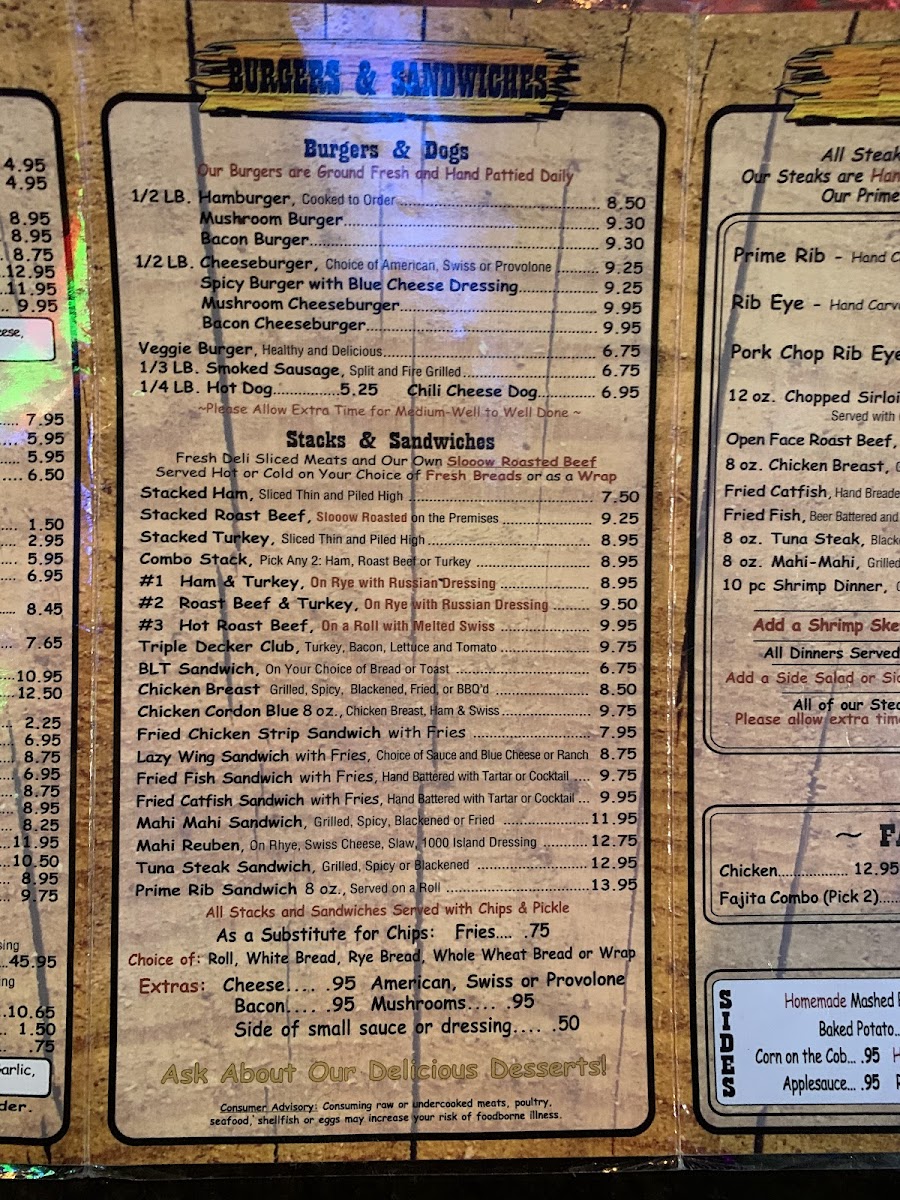 4.95
4.95
8.95
8.95
8.75
12.95
11.95
9.95
7.95
5.95
5.95
6.50
1.50
2.95
5.95
6.95
8.45
7.65
10.95
12.50
2.25
6.95
8.75
6.95
8.75
8.95
8.25
11.95
10.50
8.95
9.75
45.95
10.65
1.50
.75
BURGERS & SANDWICHES
Burgers & Dogs
Our Burgers are Ground Fresh and Hand Pattied Daily
1/2 LB. Hamburger, Cooked to Order 8.50
Mushroom Burger 9.30
Bacon Burger 9.30
1/2 LB. Cheeseburger, Choice of American, Swiss or Provolone 9.25
Spicy Burger with Blue Cheese Dressing 9.25
Mushroom Cheeseburger 9.95
Bacon Cheeseburger 9.95
Veggie Burger, Healthy and Delicious 6.75
1/3 LB. Smoked Sausage, Split and Fire Grilled 6.75
1/4 LB. Hot Dog 5.25 Chili Cheese Dog 6.95
~Please Allow Extra Time for Medium-Well to Well Done ~
Stacks & Sandwiches
Fresh Deli Sliced Meats and Our Own Slooow Roasted Beef
Served Hot or Cold on Your Choice of Fresh Breads or as a Wrap
Stacked Ham, Sliced Thin and Piled High 7.50
Stacked Roast Beef, Slooow Roasted on the Premises 9.25
Stacked Turkey, Sliced Thin and Piled High 8.95
Combo Stack, Pick Any 2: Ham, Roast Beef or Turkey 8.95
#1 Ham & Turkey, On Rye with Russian Dressing 8.95
#2 Roast Beef & Turkey, On Rye with Russian Dressing 9.50
#3 Hot Roast Beef, On a Roll with Melted Swiss 9.95
Triple Decker Club, Turkey, Bacon, Lettuce and Tomato 9.75
BLT Sandwich, On Your Choice of Bread or Toast 6.75
Chicken Breast Grilled, Spicy, Blackened, Fried, or BBQ'd 8.50
Chicken Cordon Blue 8 oz., Chicken Breast, Ham & Swiss 9.75
Fried Chicken Strip Sandwich with Fries 7.95
Lazy Wing Sandwich with Fries, Choice of Sauce and Blue Cheese or Ranch 8.75
Fried Fish Sandwich with Fries, Hand Battered with Tartar or Cocktail 9.75
Fried Catfish Sandwich with Fries, Hand Battered with Tartar or Cocktail 9.95
Mahi Mahi Sandwich, Grilled, Spicy, Blackened or Fried 11.95
Mahi Reuben, On Rhye, Swiss Cheese, Slaw, 1000 Island Dressing 12.75
Tuna Steak Sandwich, Grilled, Spicy or Blackened 12.95
Prime Rib Sandwich 8 oz., Served on a Roll 13.95
All Stacks and Sandwiches Served with Chips & Pickle
As a Substitute for Chips: Fries.... .75
Choice of: Roll, White Bread, Rye Bread, Whole Wheat Bread or Wrap
Extras: Cheese.... .95 American, Swiss or Provolone
Bacon.... .95 Mushrooms.... .95
Side of small sauce or dressing.... .50
Ask About Our Delicious Desserts!
Consumer Advisory: Consuming raw or undercooked meats, poultry,
seafood, shellfish or eggs may increase your risk of foodborne illness.
All Steak
Our Steaks are
Our Prime
Prime Rib - Hand
Rib Eye - Hand
Pork Chop Rib Eye
12 oz. Chopped
Served with
Open Face Roast Beef,
8 oz. Chicken Breast,
Fried Catfish, Hand
Fried Fish, Beer Battered and
8 oz. Tuna Steak,
8 oz. Mahi-Mahi, Grilled
10 pc Shrimp Dinner,
Add a Shrimp
All Dinners Served
Add a Side Salad or
All of our
Please allow extra
Chicken 12.95
Fajita Combo (Pick 2)
SIDES
Homemade Mashed
Baked Potato
Corn on the Cob... .95
Applesauce... .95